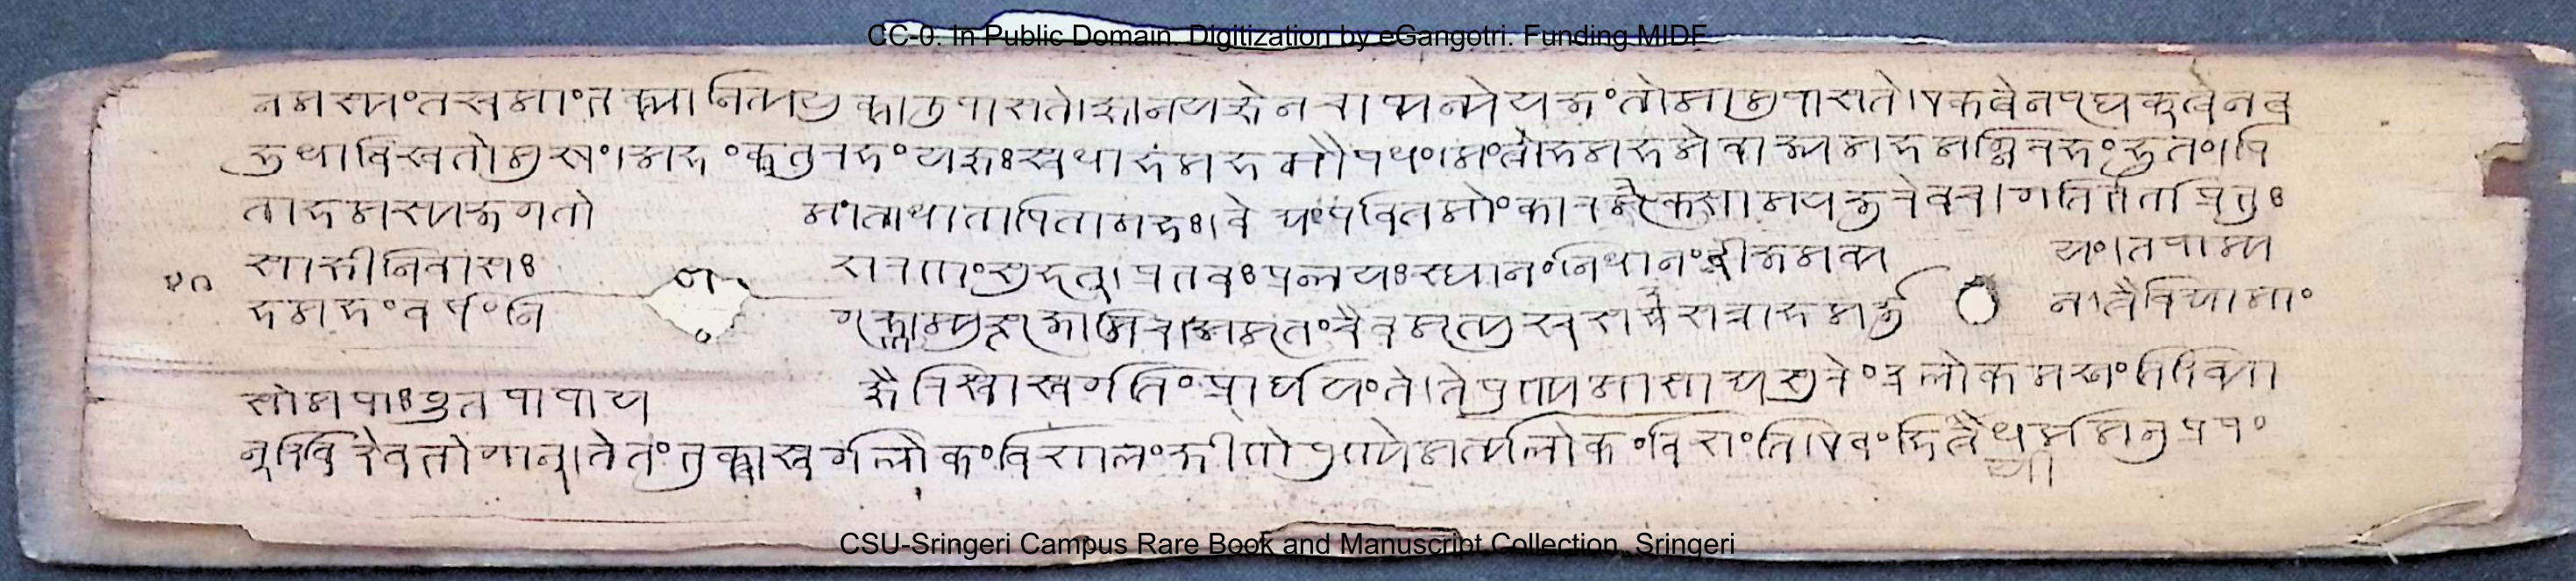 CC-0. In Public Domain. Digitization by eGangotri. Funding MIDF
नमस्यंतश्च मां भक्त्या नित्ययुक्ता उपासते। ज्ञानयज्ञेन चाप्यन्ये यजंतो मामुपासते। एकत्वेन पृथक्त्वेन ब
हुधा विश्वतोमुखं। अहं क्रतुरहं यज्ञः स्वधाहमहमौषधं। मंत्रोहमहमेवाज्यमहमग्निरहं हुतं। पि
ताहमस्य जगतो माता धाता पितामहः। वेद्यं पवित्रमोंकार ऋक्साम यजुरेव च। गतिर्भर्ता प्रभुः
साक्षी निवासः शरणं सुहृत्। प्रभवः प्रलयः स्थानं निधानं बीजमव्ययं। तपाम्य
हमहं वर्षं निगृह्णाम्युत्सृजामि च। अमृतं चैव मृत्युश्च सदसच्चाहमर्जुन। त्रैविद्या मां
सोमपाः पूतपापा यज्ञैरिष्ट्वा स्वर्गतिं प्रार्थयंते। ते पुण्यमासाद्य सुरेंद्रलोकमश्नंति दिव्या
न्दिवि देवभोगान्। ते तं भुक्त्वा स्वर्गलोकं विशालं क्षीणे पुण्ये मर्त्यलोकं विशंति। एवं हि त्रैधर्ममनुप्रप
यी
CSU-Sringeri Campus Rare Book and Manuscript Collection, Sringeri